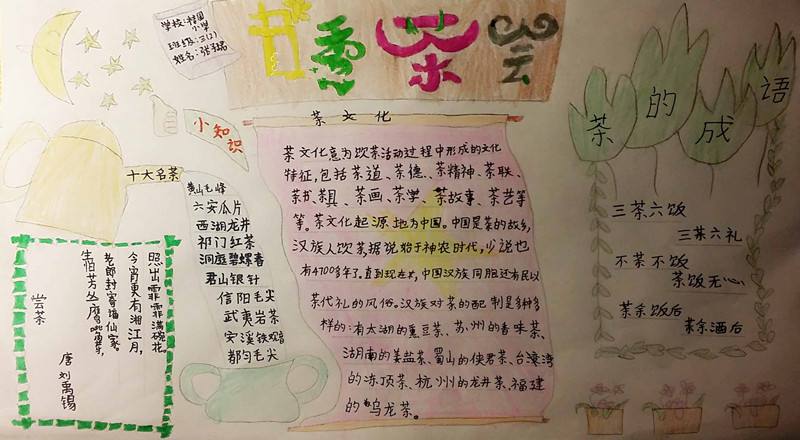 茶
学校:桂园
小学
班级:三(2)
小知识
十大名茶
黄山毛峰
六安瓜片
西湖龙井
祁门红茶
洞庭碧螺春
君山银针
信阳毛尖
武夷岩茶
安溪铁观音
都匀毛尖
尝茶
唐 刘禹锡
生怕芳丛鹰嘴芽,
老郎封寄谪仙家。
今宵更有湘江月,
照出霏霏满碗花
茶文化
茶文化意为饮茶活动过程中形成的文化
特征,包括茶道、茶德、茶精神、茶联、
茶书、茶具、茶画、茶学、茶故事、茶艺等
等。茶文化起源地为中国。中国是茶的故乡,
汉族人饮茶据说始于神农时代,少说也
有4700多年了。直到现在,中国汉族同胞还有民以
茶代礼的风俗。汉族对茶的配制是多种多
样的:有太湖的熏豆茶、苏州的香味茶、
湖南的姜盐茶、蜀山的侠君茶、台湾
的冻顶茶、杭州的龙井茶、福建
的乌龙茶。
茶的成语
三茶六饭
三茶六礼
不茶不饭
茶饭无心
茶余饭后
茶余酒后